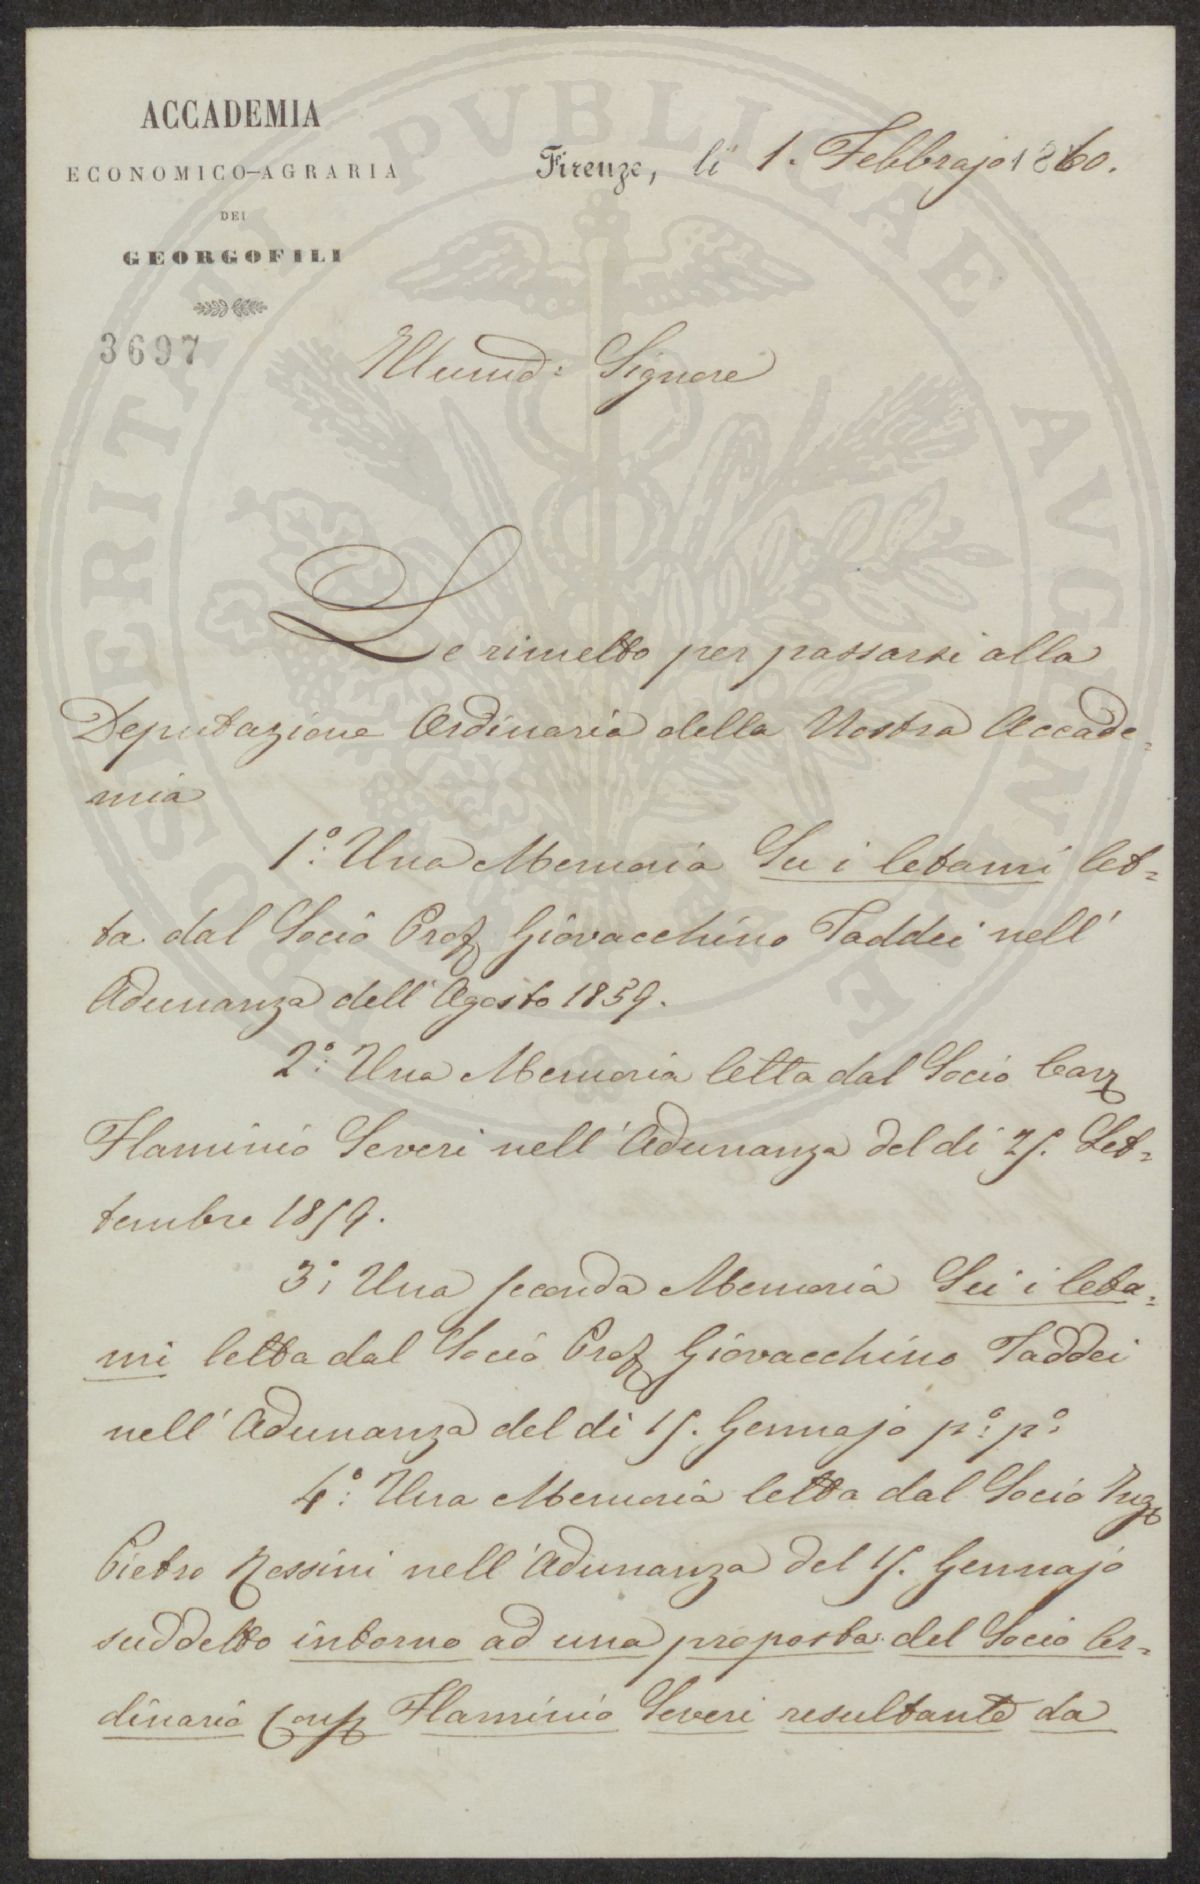 ACCADEMIA
ECONOMICO-AGRARIA
DEI
GEORGOFILI
Firenze, li 1. Febbrajo 1860.
3697
Signore
Le rimetto per passarsi alla
Deputazione Ordinaria della Nostra Accade=
mia
1.° Una Memoria Su i letami let=
ta dal Socio Prof. Giovacchino Taddei nell'
Adunanza dell'Agosto 1859.
2.° Una Memoria letta dal Socio
Flaminio Severi nell'Adunanza del di 25. Set=
tembre 1859.
3.° Una seconda Memoria Su i leta=
mi letta dal Socio Prof. Giovacchino Taddei
nell'Adunanza del di 15. Gennajo p.° p.°
4.° Una Memoria letta dal Socio Ing.
Pietro Rossini nell'Adunanza del 15. Gennajo
suddetto intorno ad una proposta del Socio Or=
dinario Flaminio Severi resultante da
PROSPERITATI PVBLICAE AVGENDAE